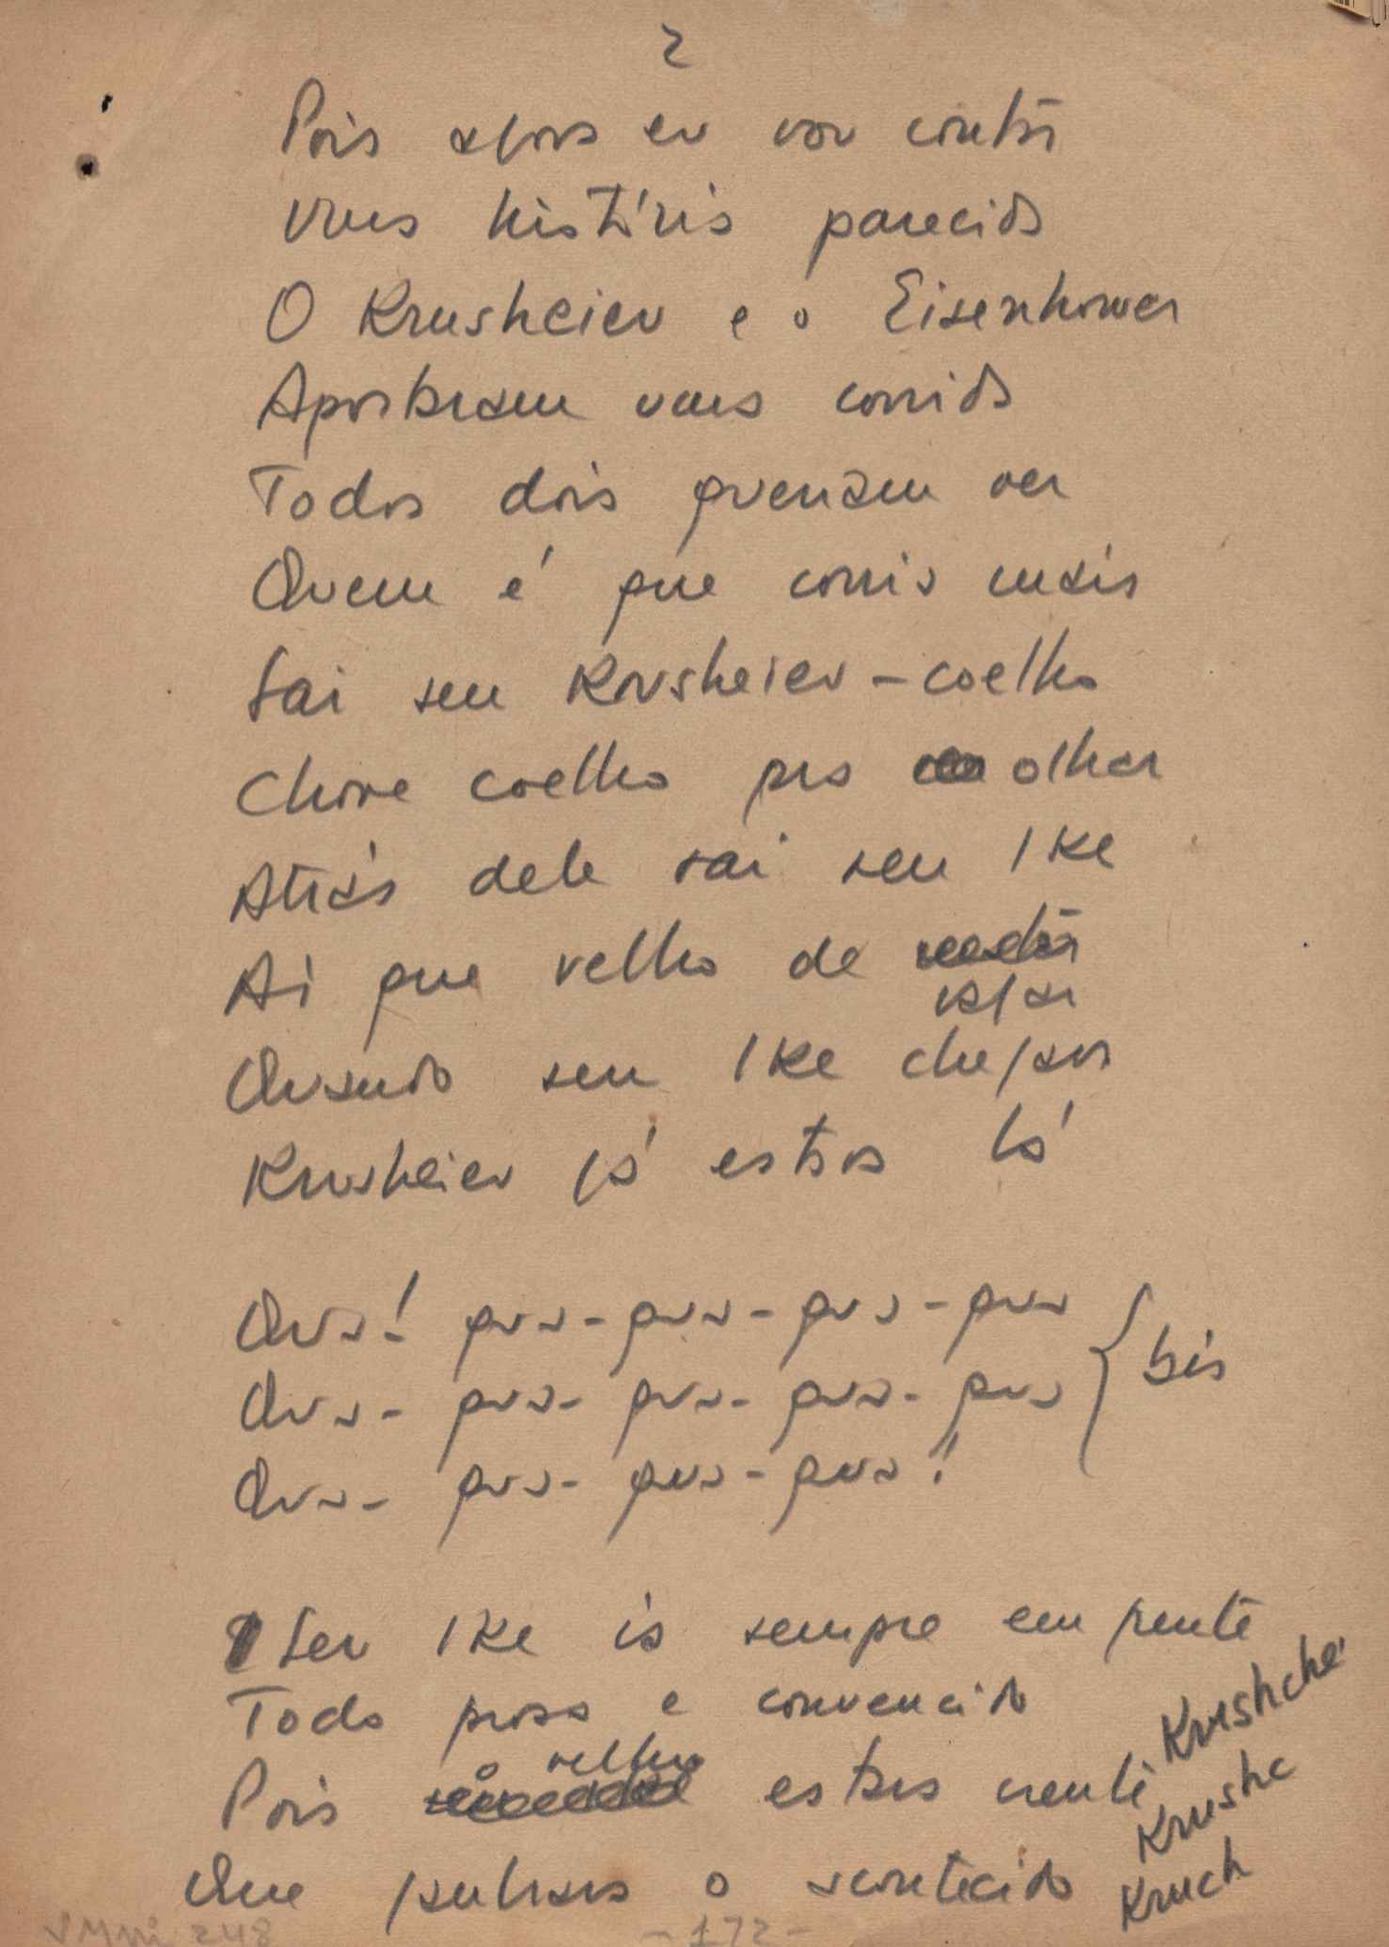 2
Pois agora eu vou contar
Uma história parecida
O Krusheiev e o Eisenhower
Apostaram uma corrida
Todos dois queriam ver
Quem é que corria mais
Sai seu Krusheiev - coelho
Chove coelho pra olhar
Atrás dele sai seu Ike
Ai que velho de
Quando seu Ike chegou
Krusheiev já estava lá
Qua! qua-qua-qua-qua
Qua- qua- qua- qua- qua
Qua- qua- qua-qua!
bis
Seu Ike ia sempre em frente
Todo prosa e convencido
Pois o velho estava crente
Que ganhava o acontecido
Krushché
Krushc
Kruch
248
-172-